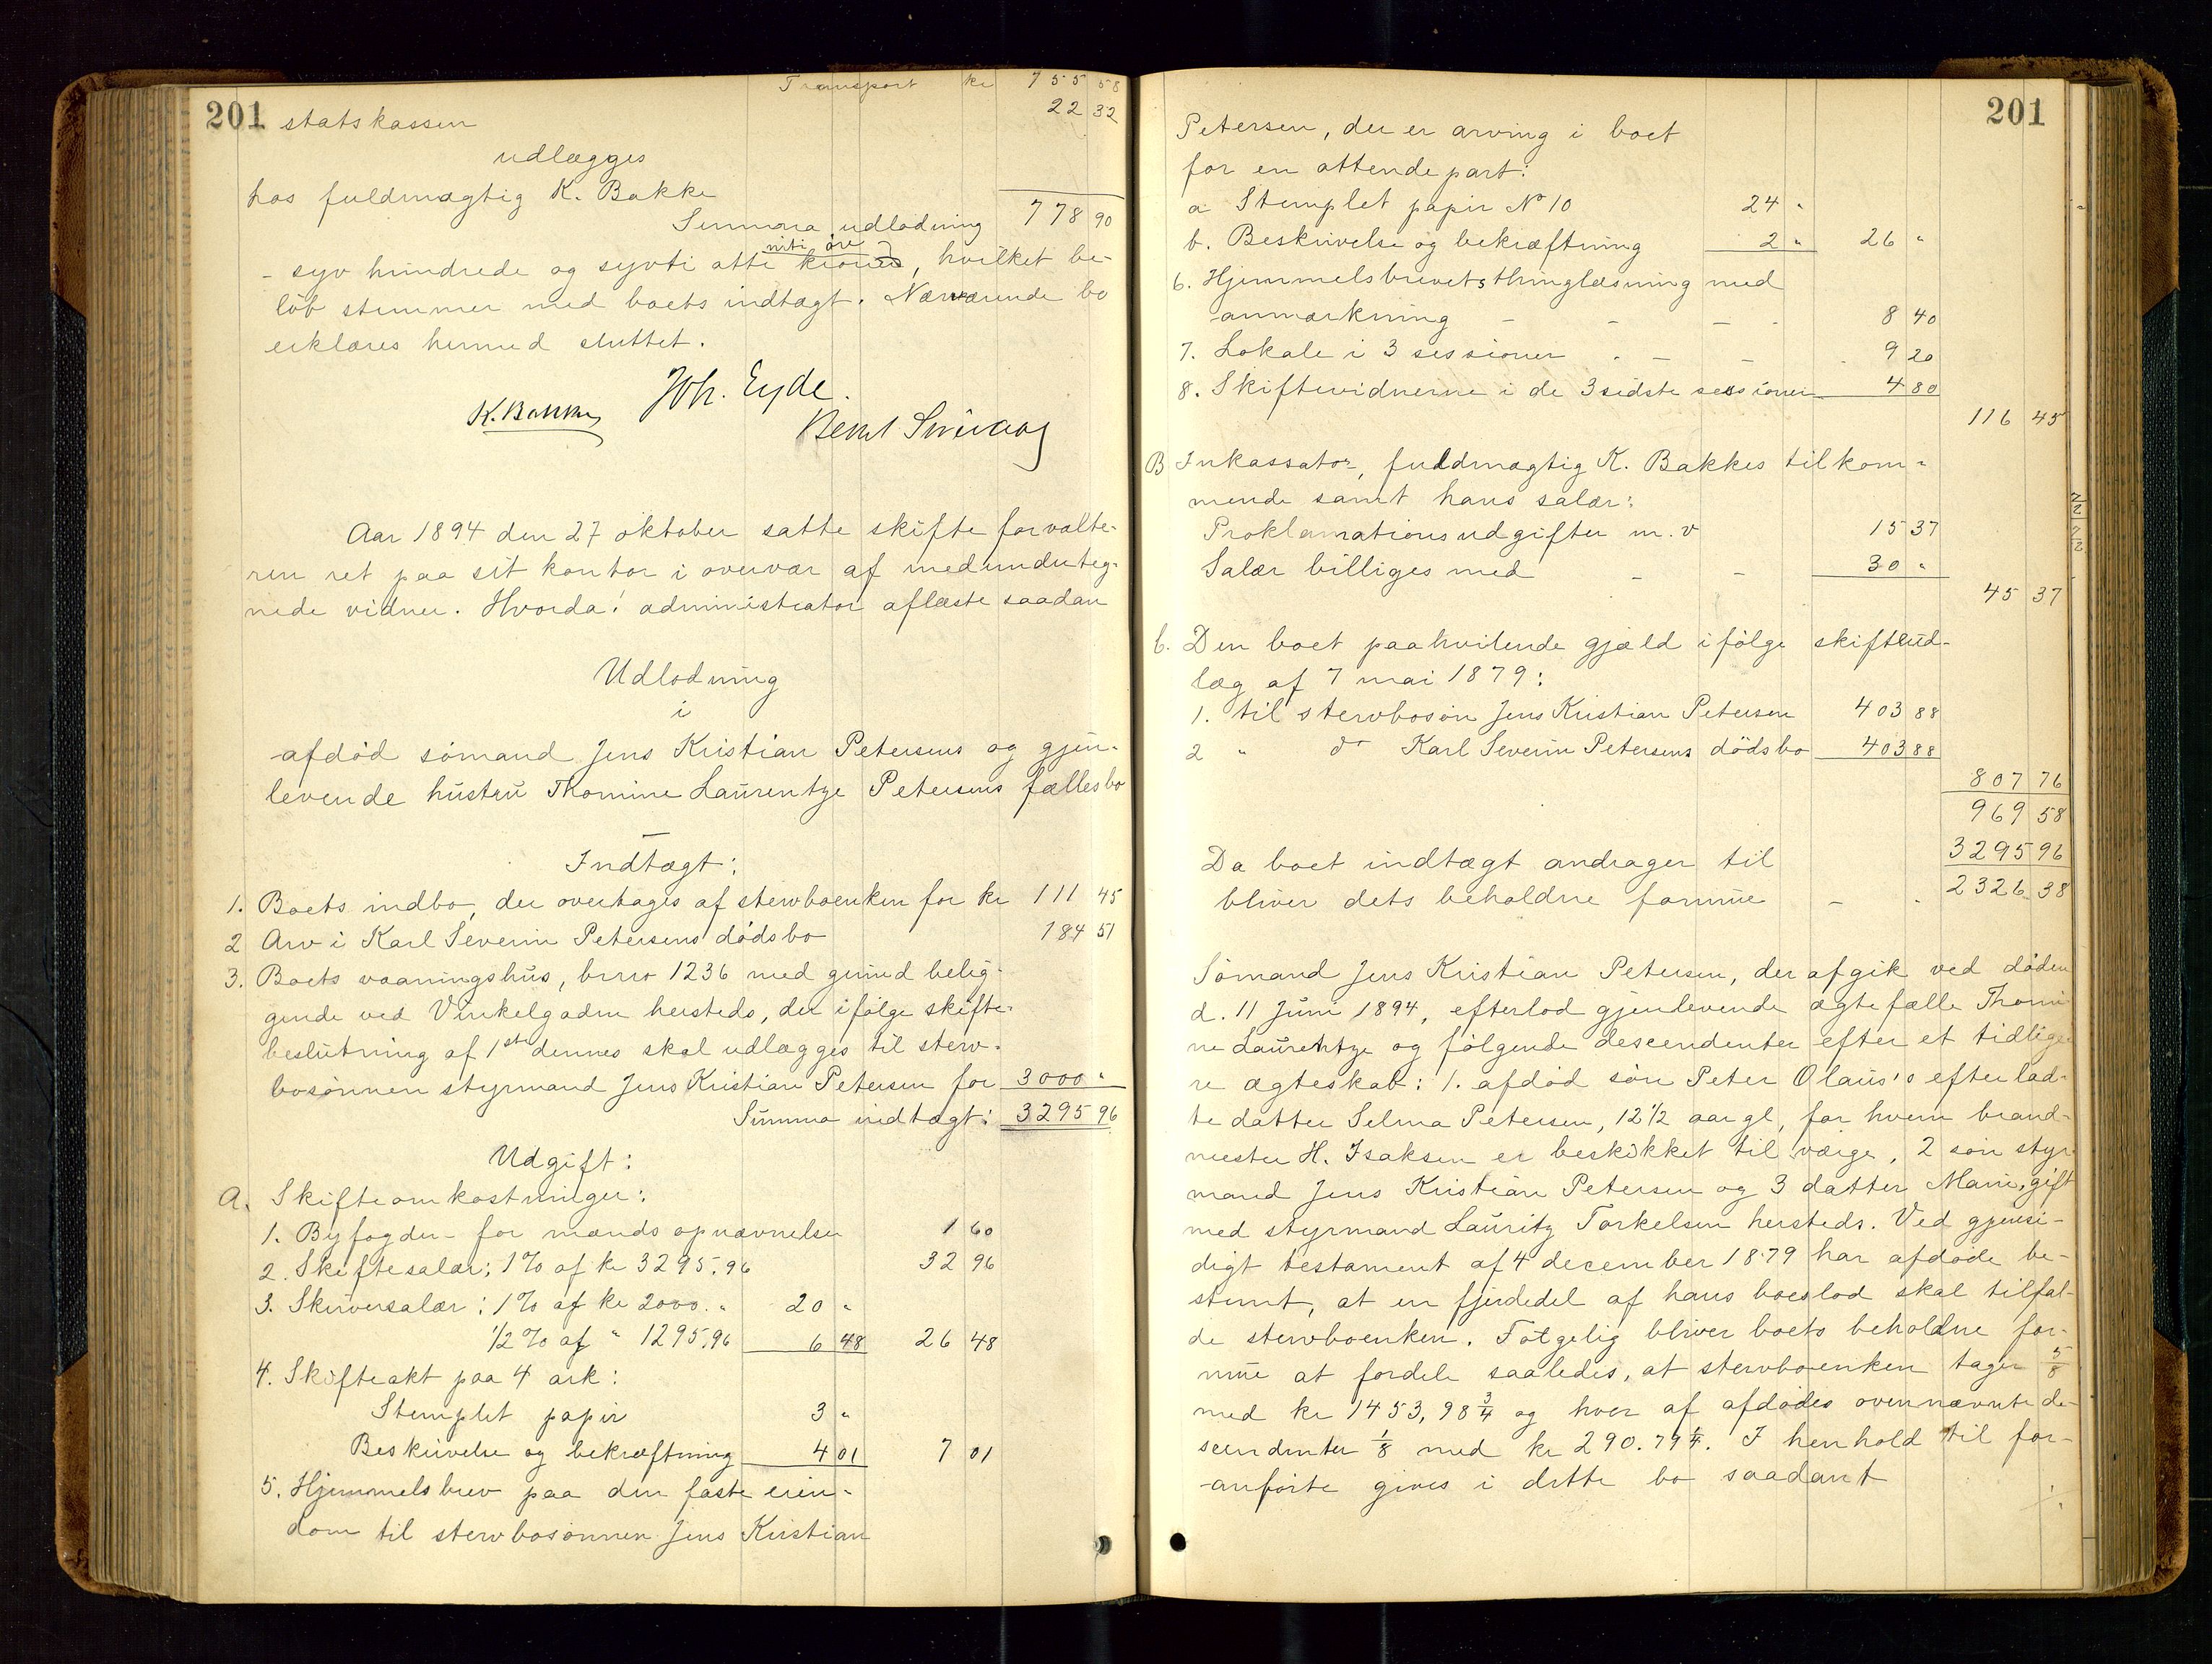 Transport kr 755 58
201 statskassen 22 32
udlægges
hos fuldmægtig K. Bakke
Summa udlodning 778 90
niti öre
- syv hundrede og sytti otte kroner, hvilket be-
löb stemmer med boets indtægt. Nærværende bo
erklæres hermed sluttet.
K. Bakke Joh. Eyde.
Aar 1894 den 27 oktober satte skifteforvalte-
ren ret paa sit kontor i overvær af medunderteg-
nede vidner. Hvorda! administrator aflæste saadan
Udlodning
i
afdöd sömand Jens Kristian Petersens og gjen-
levende hustru Thomine Laurentze Petersens fællesbo
Indtægt:
1. Boets indbo, der overtages af stervboenken for kr 111 45
2 Arv i Karl Severin Petersens dödsbo 184 51
3. Boets vaaningshus, brno 1236 med grund belig-
gende ved Vinkelgaden hersteds, der ifölge skifte-
beslutning af 1ste dennes skal udlægges til sterv-
bosönnen styrmand Jens Kristian Petersen for 3000 "
Summa indtægt: 3295 96
Udgift:
A. Skifteomkostninger:
1. Byfogden for mænds opnævnelse 1 60
2. Skiftesalær: 1% af kr 3295.96 32 96
3. Skriversalær: 1% af kr 2000. " 20 "
1/2% af " 1295.96 6 48 26 48
4. Skifteakt paa 4 ark:
Stemplet papir 3 "
Beskrivelse og bekræftning 4 01 7 01
5. Hjemmelsbrev paa den faste eien-
dom til stervbosönnen Jens Kristian
201
Petersen, der er arving i boet
for en ottendepart:
a Stemplet papir No 10 24 "
b. Beskrivelse og bekræftning 2 " 26 "
6. Hjemmelsbrevets thinglæsning med
anmærkning - - - - 8 40
7. Lokale i 3 sessioner - - 9 20
8. Skiftevidnerne i de 3 sidste sessioner 4 80
116 45
B Inkassator, fuldmægtig K. Bakkes tilkom-
mende samt hans salær:
Proklamationsudgifter m. v 15 37
Salær billiges med - - 30 "
45 37
C. Den boet paahvilende gjæld ifölge skifteud-
læg af 7 mai 1879:
1. til stervbosön Jens Kristian Petersen 403 88
2 " do Karl Severin Petersens dödsbo 403 88
807 76
969 58
Da boet indtægt andrager til 3295 96
bliver dets beholdne formue - - 2326 38
Sömand Jens Kristian Petersen, der afgik ved döden
d. 11 Juni 1894, efterlod gjenlevende ægtefælle Thomi-
ne Laurentze og fölgende descendenter efter et tidlige-
re ægteskab: 1. afdöd sön Peter Olaus's efterlad-
te datter Selma Petersen, 12 1/2 aar gl, for hvem brand-
mester H. Isaksen er beskikket til værge, 2 sön styr-
mand Jens Kristian Petersen og 3 datter Marie, gift
med styrmand Lauritz Torkelsen hersteds. Ved gjensi-
digt testament af 4 december 1879 har afdöde be-
stemt, at en fjerdedel af hans boeslod skal tilfal-
de stervboenken. Fölgelig bliver boets beholdne for-
mue at fordele saaledes, at stervboenken tager 5/8
med kr 1453,98 3/4 og hver af afdödes ovennævnte de-
scendenter 1/8 med kr 290.79 1/4. I henhold til for-
anförte gives i dette bo saadant